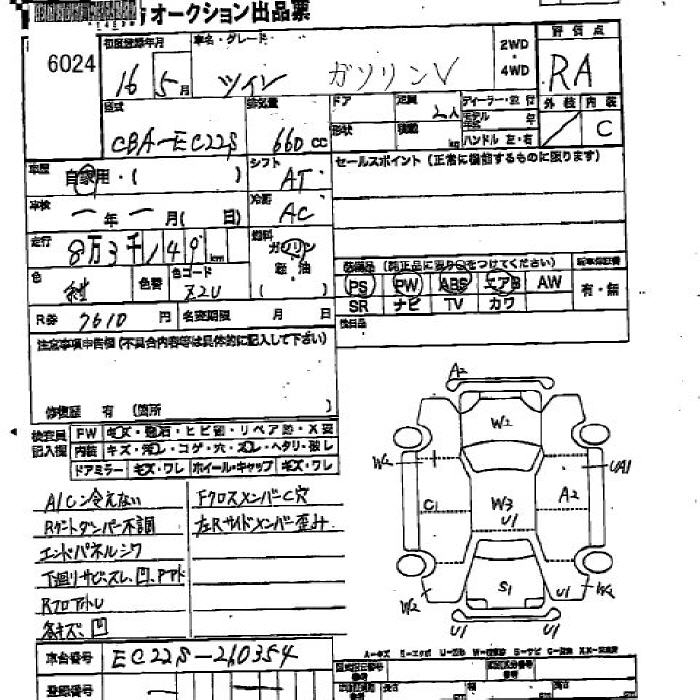 オークション出品票
6024
初度登録年月
16年 5月
車名・グレード
ツイン ガソリンV
2WD
・
4WD
評価点
RA
外装 内装
C
型式
CBA-EC22S
排気量
660 CC
ドア
形状
定員
2人
積載
kg
ディーラー・並行
モデル年式 年
ハンドル 左・右
車歴
自家用・( )
シフト
AT
セールスポイント(正常に機能するものに限ります)
車検
ー年 ー月( 日)
冷房
AC
走行
8万3千149 km
燃料
ガソリン
軽油
( )
色
紺
色替
色コード
Z2U
装備品(純正品に限り○をつけてください)
新車保証書
PS PW ABS エアB AW
有・無
SR ナビ TV カワ
R券 7610 円
名変期限 月 日
後日品
注意事項申告欄(不具合内容等は具体的に記入して下さい)
修復歴 有(箇所 )
検査員
記入欄
FW キズ・飛石・ヒビ割・リペア跡・X要
内装 キズ・汚レ・コゲ・穴・スレ・ヘタリ・破レ
ドアミラー キズ・ワレ ホイール・キャップ キズ・ワレ
A/C冷えない
Rゲートダンパー不調
エンドパネルシワ
下廻りサビ、スレ、凹、
Rフロアトレ
各キズ、凹
FクロスメンバーC穴
左Rサイドメンバー歪み
A2
W2
W2
UA1
C1
W3
U1
A2
S1
W2
U1
W2
U1
U1
A=キズ E=エクボ U=凹み W=補修跡 S=サビ C=腐食
車台番号 EC22S-210354
登録番号
長さ
幅
高さ